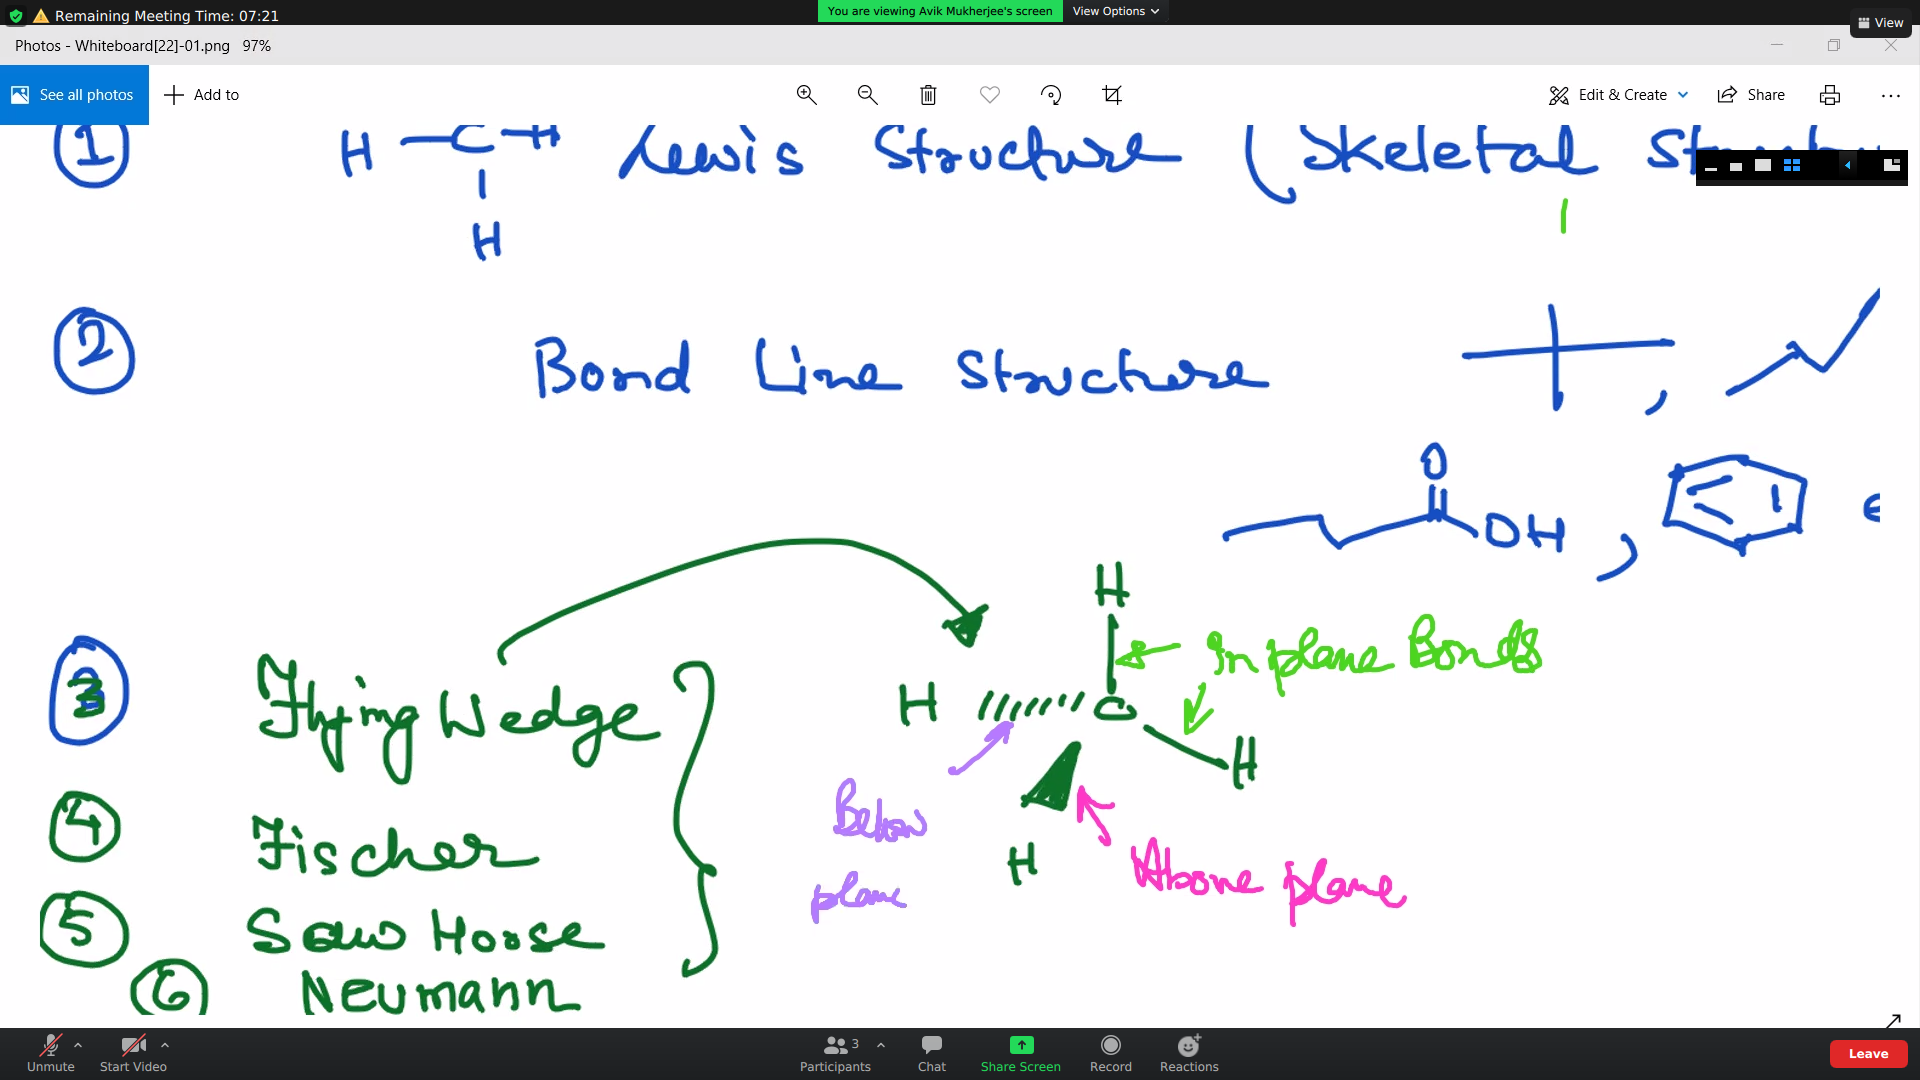 Remaining Meeting Time: 07:21
You are viewing Avik Mukherjee's screen View Options
View
Photos - Whiteboard[22]-01.png 97%
See all photos Add to Edit & Create Share
1 H C H Lewis Structure (Skeletal
H
2 Bond Line Structure ,
O
OH ,
H
In plane Bonds
3 Flying Wedge H C
H
4 Fischer Below
plane H Above plane
5 Saw Horse
6 Neumann
Unmute Start Video Participants 3 Chat Share Screen Record Reactions Leave